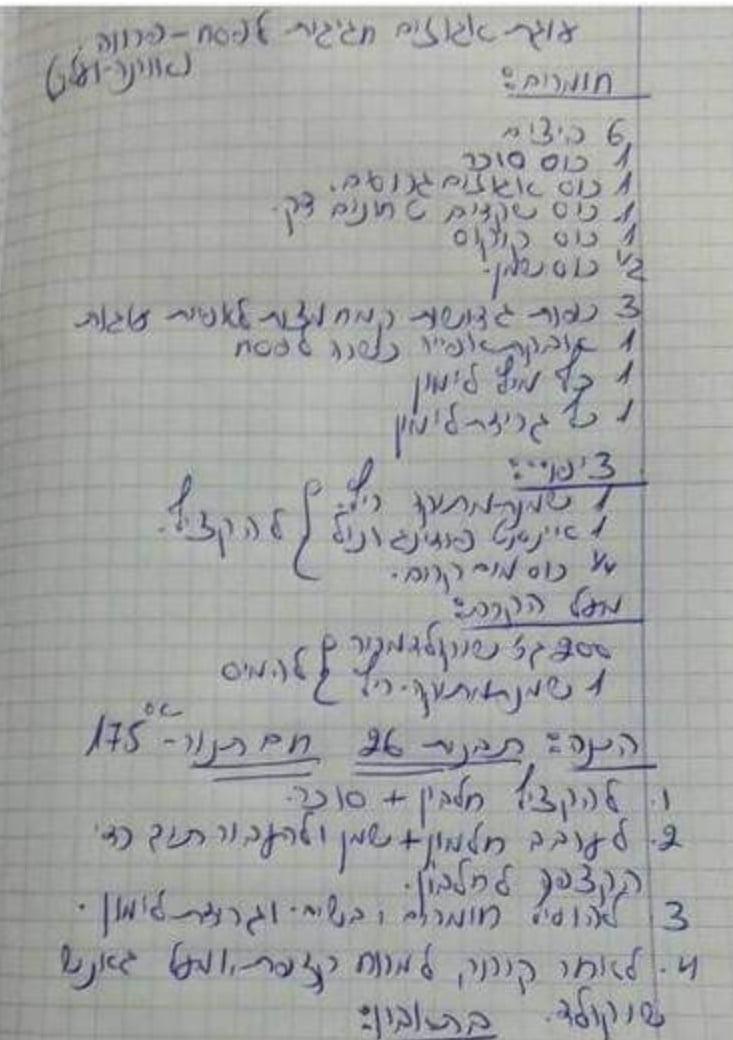 עוגת אגוזים חגיגית לפסח - פרווה
חומרים:
6 ביצים
1 כוס סוכר
1 כוס אגוזים גרוסים.
1 כוס שקדים טחונים דק.
1 כוס קוקוס
1/2 כוס שמן.
3 כפות גדושות קמח מצות לאפיית עוגות
1 אבקת אפייה כשרה לפסח
1 כף מיץ לימון
1 כף גרידת לימון
ציפוי:
1 שמנת מתוקה ריץ'
1 אינסטנט פודינג וניל
1/4 כוס מים קרים.
להקציף.
מעל הקרם:
200 גר' שוקולד מריר
1 שמנת מתוקה - ריץ'
להמיס
הכנה: תבנית 26 חם תנור - 175°
1. להקציף חלבון + סוכר.
2. לערבב חלמון + שמן ולהעביר תוך כדי
הקצפה לחלבון.
3 להוסיף חומרים יבשים וגרידת לימון.
4. לאחר קירור, למרוח קצפת, ומעל גאנש
שוקולד. בתאבון: